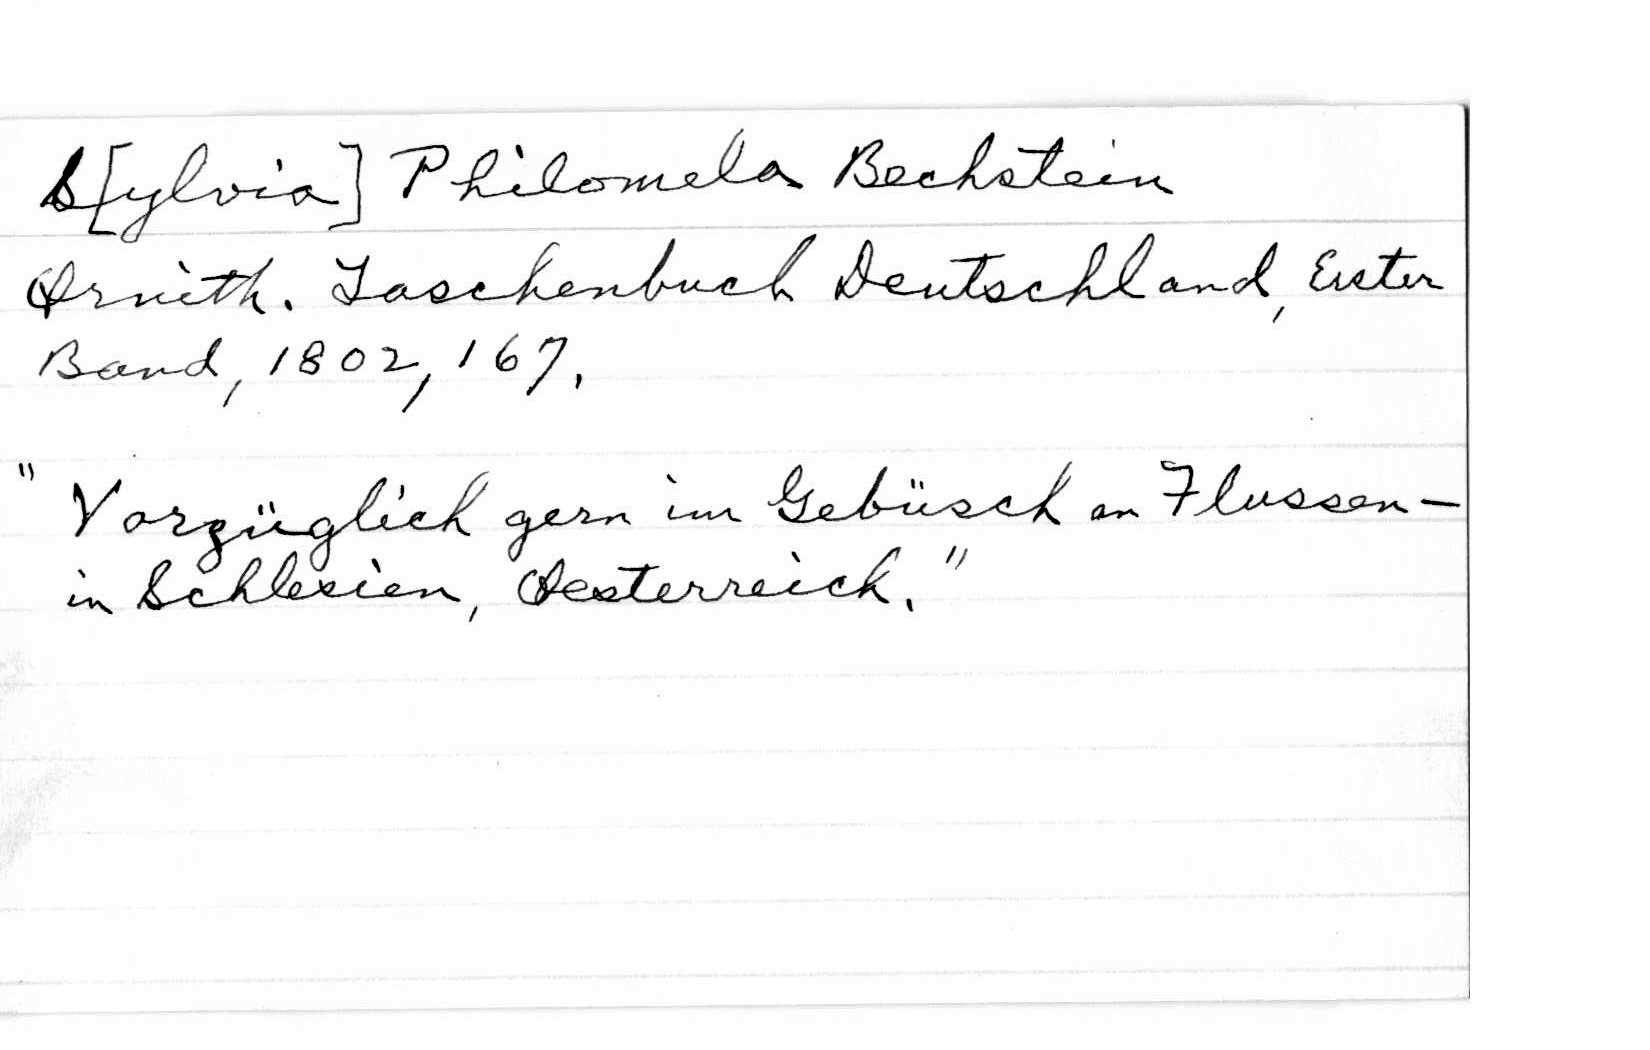 S[ylvia] Philomela Bechstein
Ornith. Taschenbuch Deutschland, Erster
Band, 1802, 167.
"Vorzüglich gern im Gebüsch an Flussen—
in Schlesien, Oesterreich."